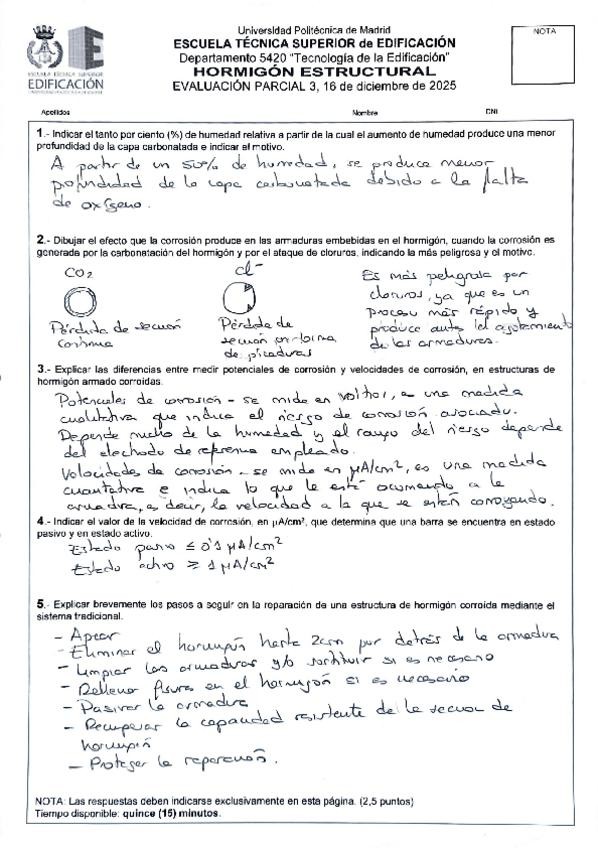 Universidad Politécnica de Madrid
ESCUELA TÉCNICA SUPERIOR de EDIFICACIÓN
Departamento 5420 "Tecnología de la Edificación"
HORMIGÓN ESTRUCTURAL
EVALUACIÓN PARCIAL 3, 16 de diciembre de 2025
NOTA
ESCUELA TÉCNICA SUPERIOR
EDIFICACIÓN
Apellidos Nombre DNI
1.- Indicar el tanto por ciento (%) de humedad relativa a partir de la cual el aumento de humedad produce una menor
profundidad de la capa carbonatada e indicar el motivo.
A partir de un 50% de humedad, se produce menor
profundidad de la capa carbonatada debido a la falta
de oxígeno.
2.- Dibujar el efecto que la corrosión produce en las armaduras embebidas en el hormigón, cuando la corrosión es
generada por la carbonatación del hormigón y por el ataque de cloruros, indicando la más peligrosa y el motivo.
CO2
Pérdida de sección
continua
Cl-
Pérdida de
sección en forma
de picaduras
Es más peligrosa por
cloruros, ya que es un
proceso más rápido y
produce antes el agotamiento
de las armaduras.
3.- Explicar las diferencias entre medir potenciales de corrosión y velocidades de corrosión, en estructuras de
hormigón armado corroidas.
Potenciales de corrosión - se mide en voltios, es una medida
cualitativa que indica el riesgo de corrosión asociado.
Depende mucho de la humedad y el rango del riesgo depende
del electrodo de referencia empleado.
Velocidades de corrosión - se mide en μA/cm², es una medida
cuantitativa e indica lo que le está ocurriendo a la
armadura, es decir, la velocidad a la que se están corroyendo.
4.- Indicar el valor de la velocidad de corrosión, en μA/cm², que determina que una barra se encuentra en estado
pasivo y en estado activo.
Estado pasivo ≤ 0'1 μA/cm²
Estado activo ≥ 1 μA/cm²
5.- Explicar brevemente los pasos a seguir en la reparación de una estructura de hormigón corroída mediante el
sistema tradicional.
- Apear
- Eliminar el hormigón hasta 2cm por detrás de la armadura
- Limpiar las armaduras y/o sustituir si es necesario
- Rellenar fisuras en el hormigón si es necesario
- Pasivar la armadura
- Recuperar la capacidad resistente de la sección de
hormigón
- Proteger la reparación.
NOTA: Las respuestas deben indicarse exclusivamente en esta página. (2,5 puntos)
Tiempo disponible: quince (15) minutos.